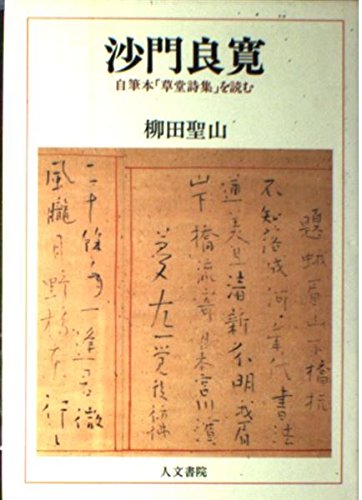 沙門良寛
自筆本「草堂詩集」を読む
柳田聖山
不知落成何年代書法
遒美且清新分明我眉
山下橋流寄日本宮川濱
二十餘年一逢君微
風朧月野橋東行
人文書院